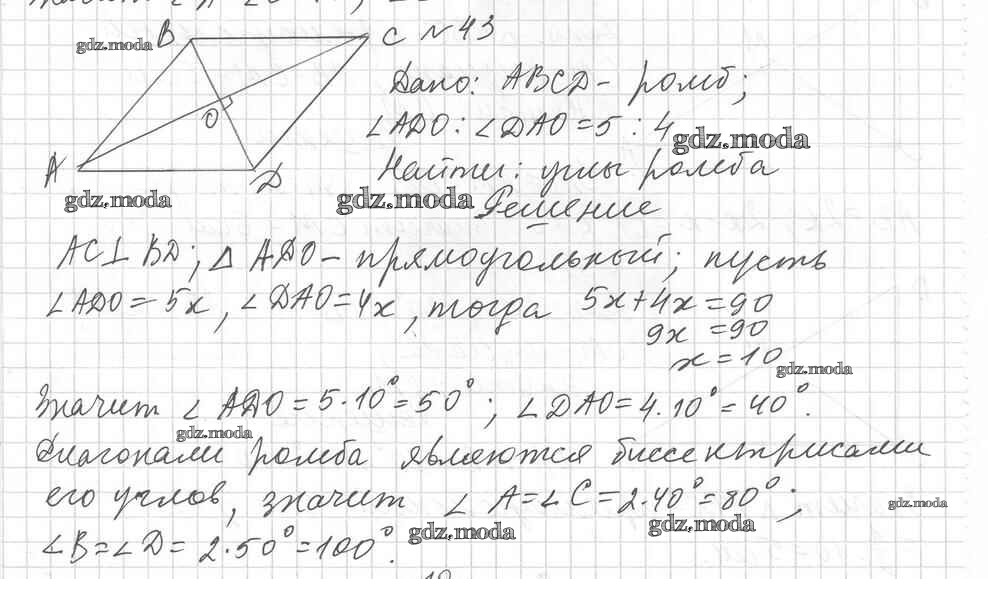 B C N 43
gdz.moda
Дано: ABCD - ромб;
O
∠ADO : ∠DAO = 5 : 4
gdz.moda
A D Найти: углы ромба
gdz.moda gdz.moda
Решение
AC⊥BD; △ ADO - прямоугольный; пусть
∠ADO = 5x, ∠DAO = 4x, тогда 5x+4x=90
9x = 90
x = 10
gdz.moda
Значит ∠ ADO = 5·10° = 50°; ∠DAO = 4·10° = 40°.
gdz.moda
Диагонали ромба являются биссектрисами
его углов, значит ∠ A = ∠ C = 2·40° = 80°;
gdz.moda
gdz.moda gdz.moda
∠B = ∠D = 2·50° = 100°.